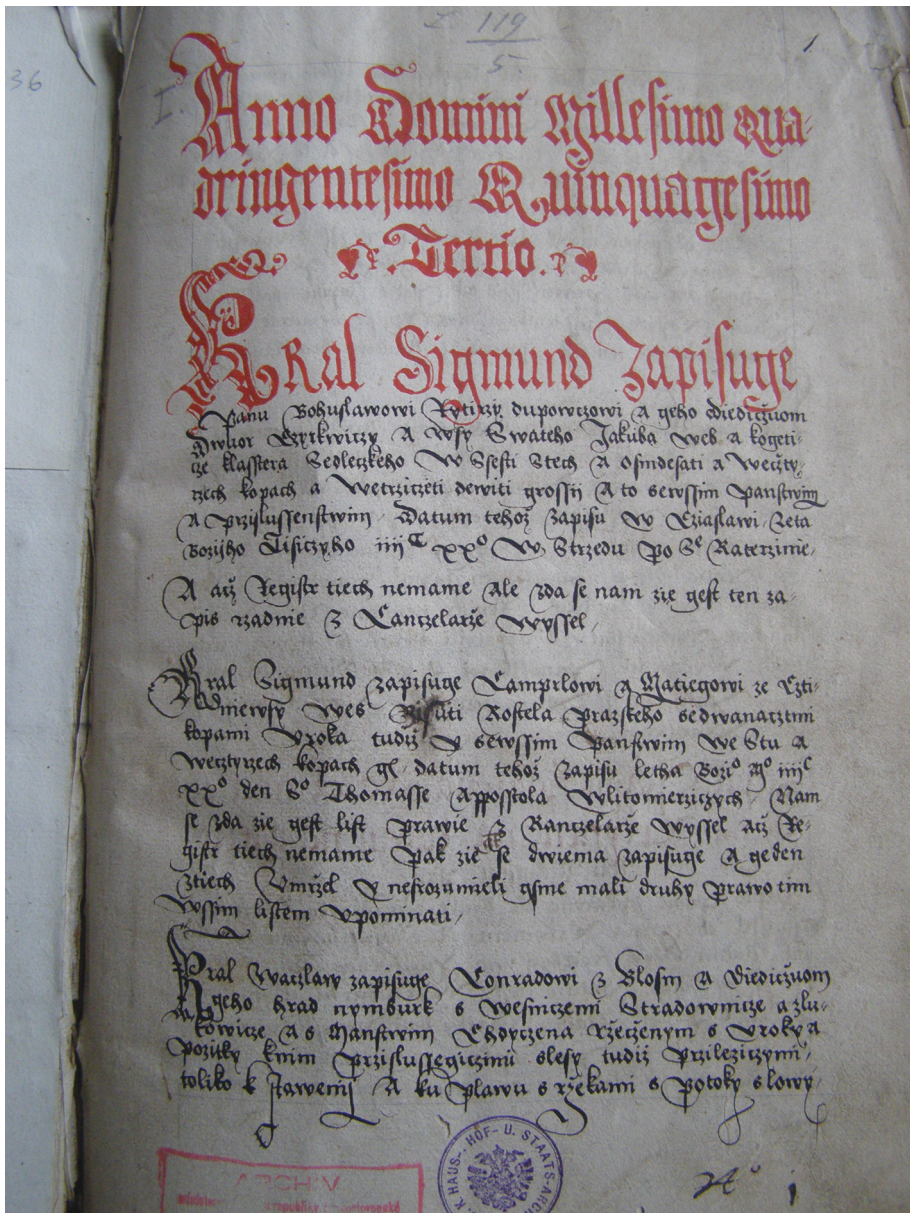 36
I 119
5
1
I.
Anno Domini Millesimo Qua-
dringentesimo Quinquagesimo
Tertio.
Kral Sigmund Zapisuge
Panu Bohuslawowi Rytirzy dupowczowi A geho Diediczuom
Dwuor Czyrkwiczy A Wsy Swateho Jakuba Web a kogeti-
ze klasstera Sedleczkeho W Ssesti Stech A Osmdesati a Weczty-
rzech kopach a Wetrziczeti dewiti grossij A to sewssim panstwim
A Przislussenstwim. Datum tehoz zapisu W Cziaslawi Leta
Bozijho Tisiczyho iiij C xx o W Strzedu po S e Katerzinie,
A acz Registr tiech nemame Ale zda se nam zie gest ten za-
pis rzadnie z Canczelarze Wyssel,
Kral Sigmund zapisuge Camprlowi A Matiegowi ze Czti-
niewsy Wes Kostela Prazskeho sedwanacztmi
kopami Uroka tudiz y sewssim Panstwim We Stu A
Wecztyrzech kopach gr. datum tehoz zapisu letha Bozi o M o iiij C
xx o den S o Thomasse Apposstola Wlitomierziczych, Nam
se zda zie gest list prawie z Kanczelarze Wyssel acz Re-
gistr tiech nemame Pak zie se dwiema zapisuge A geden
ztiech Umrzel y nesrozumieli gsme mali druhy prawo tim
Wssim listem Upominati,
Kral Waczlaw zapisuge Conradowi z Blosm A Diediczuom
geho hrad nymburk s Wesniczemi Stradownicze a zlu-
kowicze A s Manstwim Chdyczena rzeczenym s Uroky A
Pozitky knim Przislussegiczimi s lesy tudiz Przileziczymi,
toliko k stawenj A ku plawu s rzekami s Potoky s lowy,
K. K. HAUS-, HOF- U. STAATS-ARCH
ARCHIV